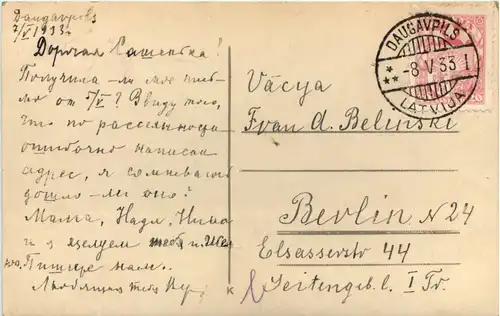 Daugavpils
7/V 1933.
Дорогая Сашенька!
Получила-ли мое пись-
мо от 5/V? Ввиду того,
что по рассеянности
ошибочно написан
адрес, я сомневаюсь
дошло-ли оно?
Мама, Надя, Нина
и я целуем тебя и
Пишите нам.
Любящая тебя
DAUGAVPILS
-8 V 33 I
LATVIJA
Vācya
Fran A. Belinski
Berlin N 24
Elsasserstr 44
Seitengeb. l. I Tr.
K